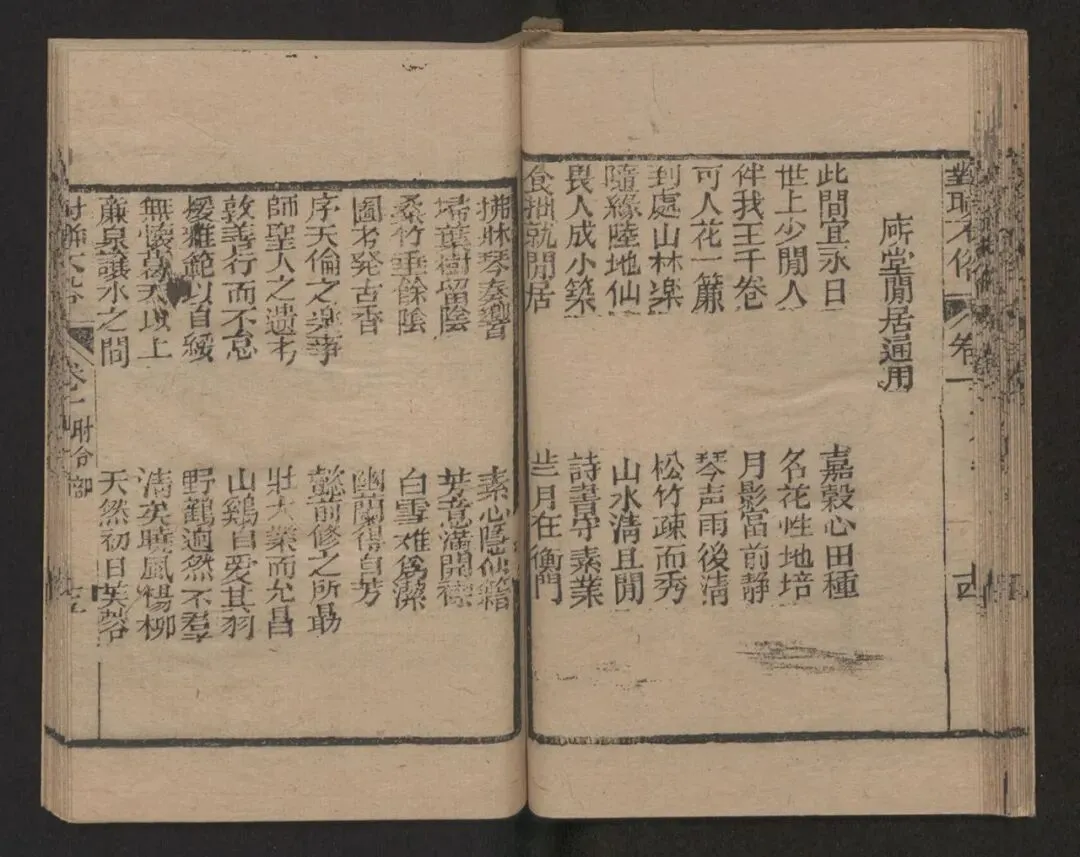 厛堂閒居通用
此間宜永日
嘉穀心田種
世上少閒人
名花性地培
伴我王千卷
月影當前静
可人花一簾
琴声雨後清
到處山林楽
松竹疎而秀
隨緣陸地仙
山水清且閒
畏人成小築
詩書守素業
食拙就閒居
歲月在衡門
拂牀琴奏響
素心隱仙籍
埽葉樹留陰
芳意滿開襟
桑竹垂餘陰
白雪难為潔
圖书発古香
幽蘭得自芳
序天倫之楽事
懿前修之所勗
師聖人之遺书
壯大業而允昌
敦善行而不怠
山鷄自愛其羽
援雅範以自綏
野鶴逈然不羣
無懷葛天以上
清矣曉風楊柳
亷泉讓水之間
天然初日芙蓉
卷一